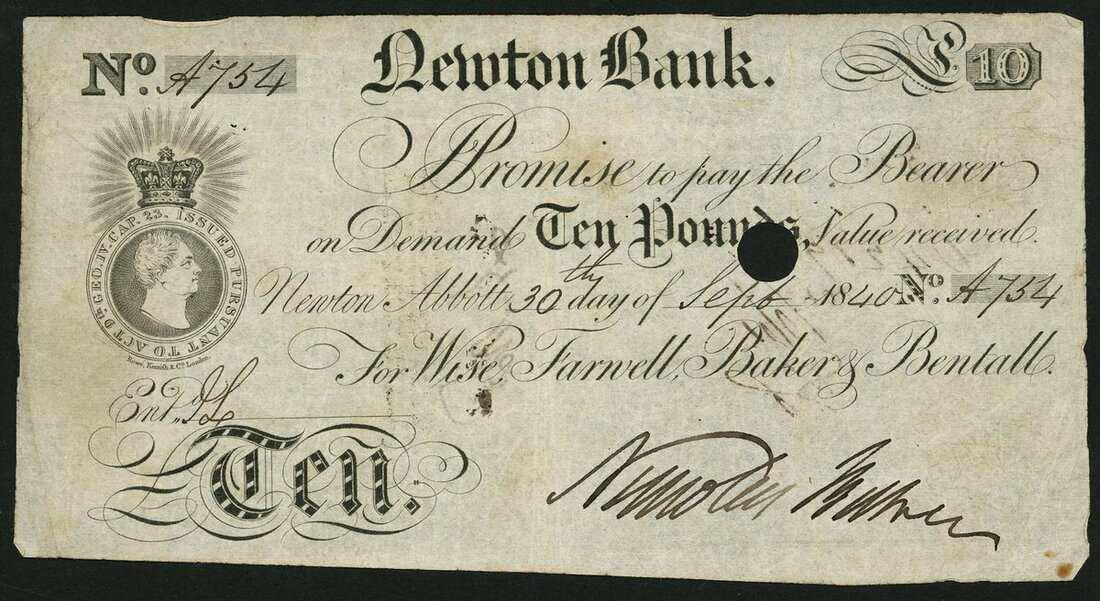 No. A754
Newton Bank.
£. 10
I Promise to pay the Bearer
on Demand Ten Pounds, Value received.
Newton Abbott 30th day of Sept 1840 No. A754
For Wise, Farwell, Baker & Bentall.
ISSUED PURSUANT TO ACT 9th GEO. IV. CAP. 23.
Ent.d
£ Ten.